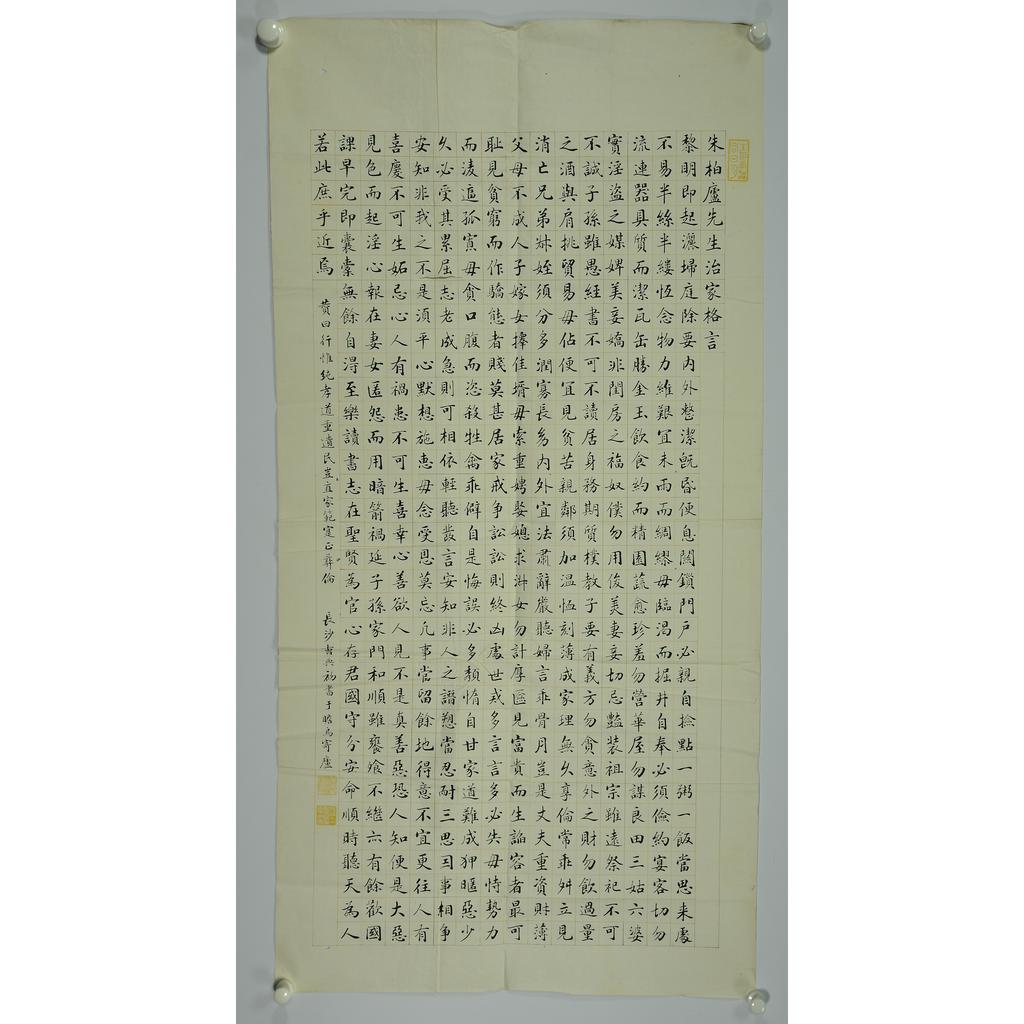 朱柏廬先生治家格言
黎明即起灑埽庭除要內外整潔旣昏便息關鎖門戶必親自撿點一粥一飯當思来處
不易半絲半縷恆念物力維艱宜未雨而綢繆毋臨渴而掘井自奉必須儉約宴客切勿
流連器具質而潔瓦缶勝金玉飲食約而精園蔬愈珍羞勿營華屋勿謀良田三姑六婆
實淫盜之媒婢美妾嬌非閨房之福奴僕勿用俊美妻妾切忌豔裝祖宗雖遠祭祀不可
不誠子孫雖愚經書不可不讀居身務期質樸教子要有義方勿貪意外之財勿飲過量
之酒與肩挑貿易毋佔便宜見貧苦親鄰須加溫恤刻薄成家理無久享倫常乖舛立見
消亡兄弟姪須分多潤寡長幼內外宜法肅辭嚴聽婦言乖骨月豈是丈夫重資財薄
父母不成人子嫁女擇佳壻毋索重娉娶媳求淑女勿計厚匳見富貴而生諂容者最可
耻見貧窮而作驕態者賤莫甚居家戒争訟訟則終凶處世戒多言言多必失毋恃勢力
而淩逼孤寡毋貪口腹而恣殺牲禽乖僻自是悔誤必多頹惰自甘家道難成狎暱惡少
久必受其累屈志老成急則可相依輕聽發言安知非人之譖愬當忍耐三思因事相争
安知非我之不是須平心默想施惠毋念受恩莫忘凡事當留餘地得意不宜更往人有
喜慶不可生妬忌心人有禍患不可生喜幸心善欲人見不是真善惡恐人知便是大惡
見色而起淫心報在妻女匿怨而用暗箭禍延子孫家門和順雖饔飧不繼亦有餘歡國
課早完即囊橐無餘自得至樂讀書志在聖賢為官心存君國守分安命順時聽天為人
若此庶乎近焉
贊曰行惟純孝道重遺民豈直家範寔正彝倫
長沙書于瞻烏寄廬